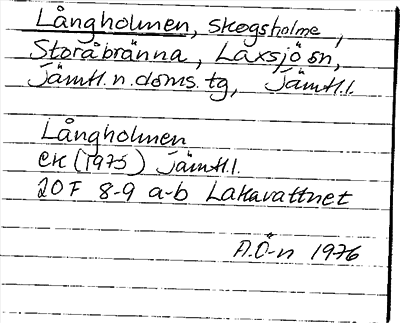 Långholmen, skogsholme,
Storåbränna, Laxsjö sn,
Jämtl. n. doms. tg, Jämtl.l.
Långholmen
ek (1975) Jämtl.l.
20F 8-9 a-b Lakavattnet
A.Ö-n 1976